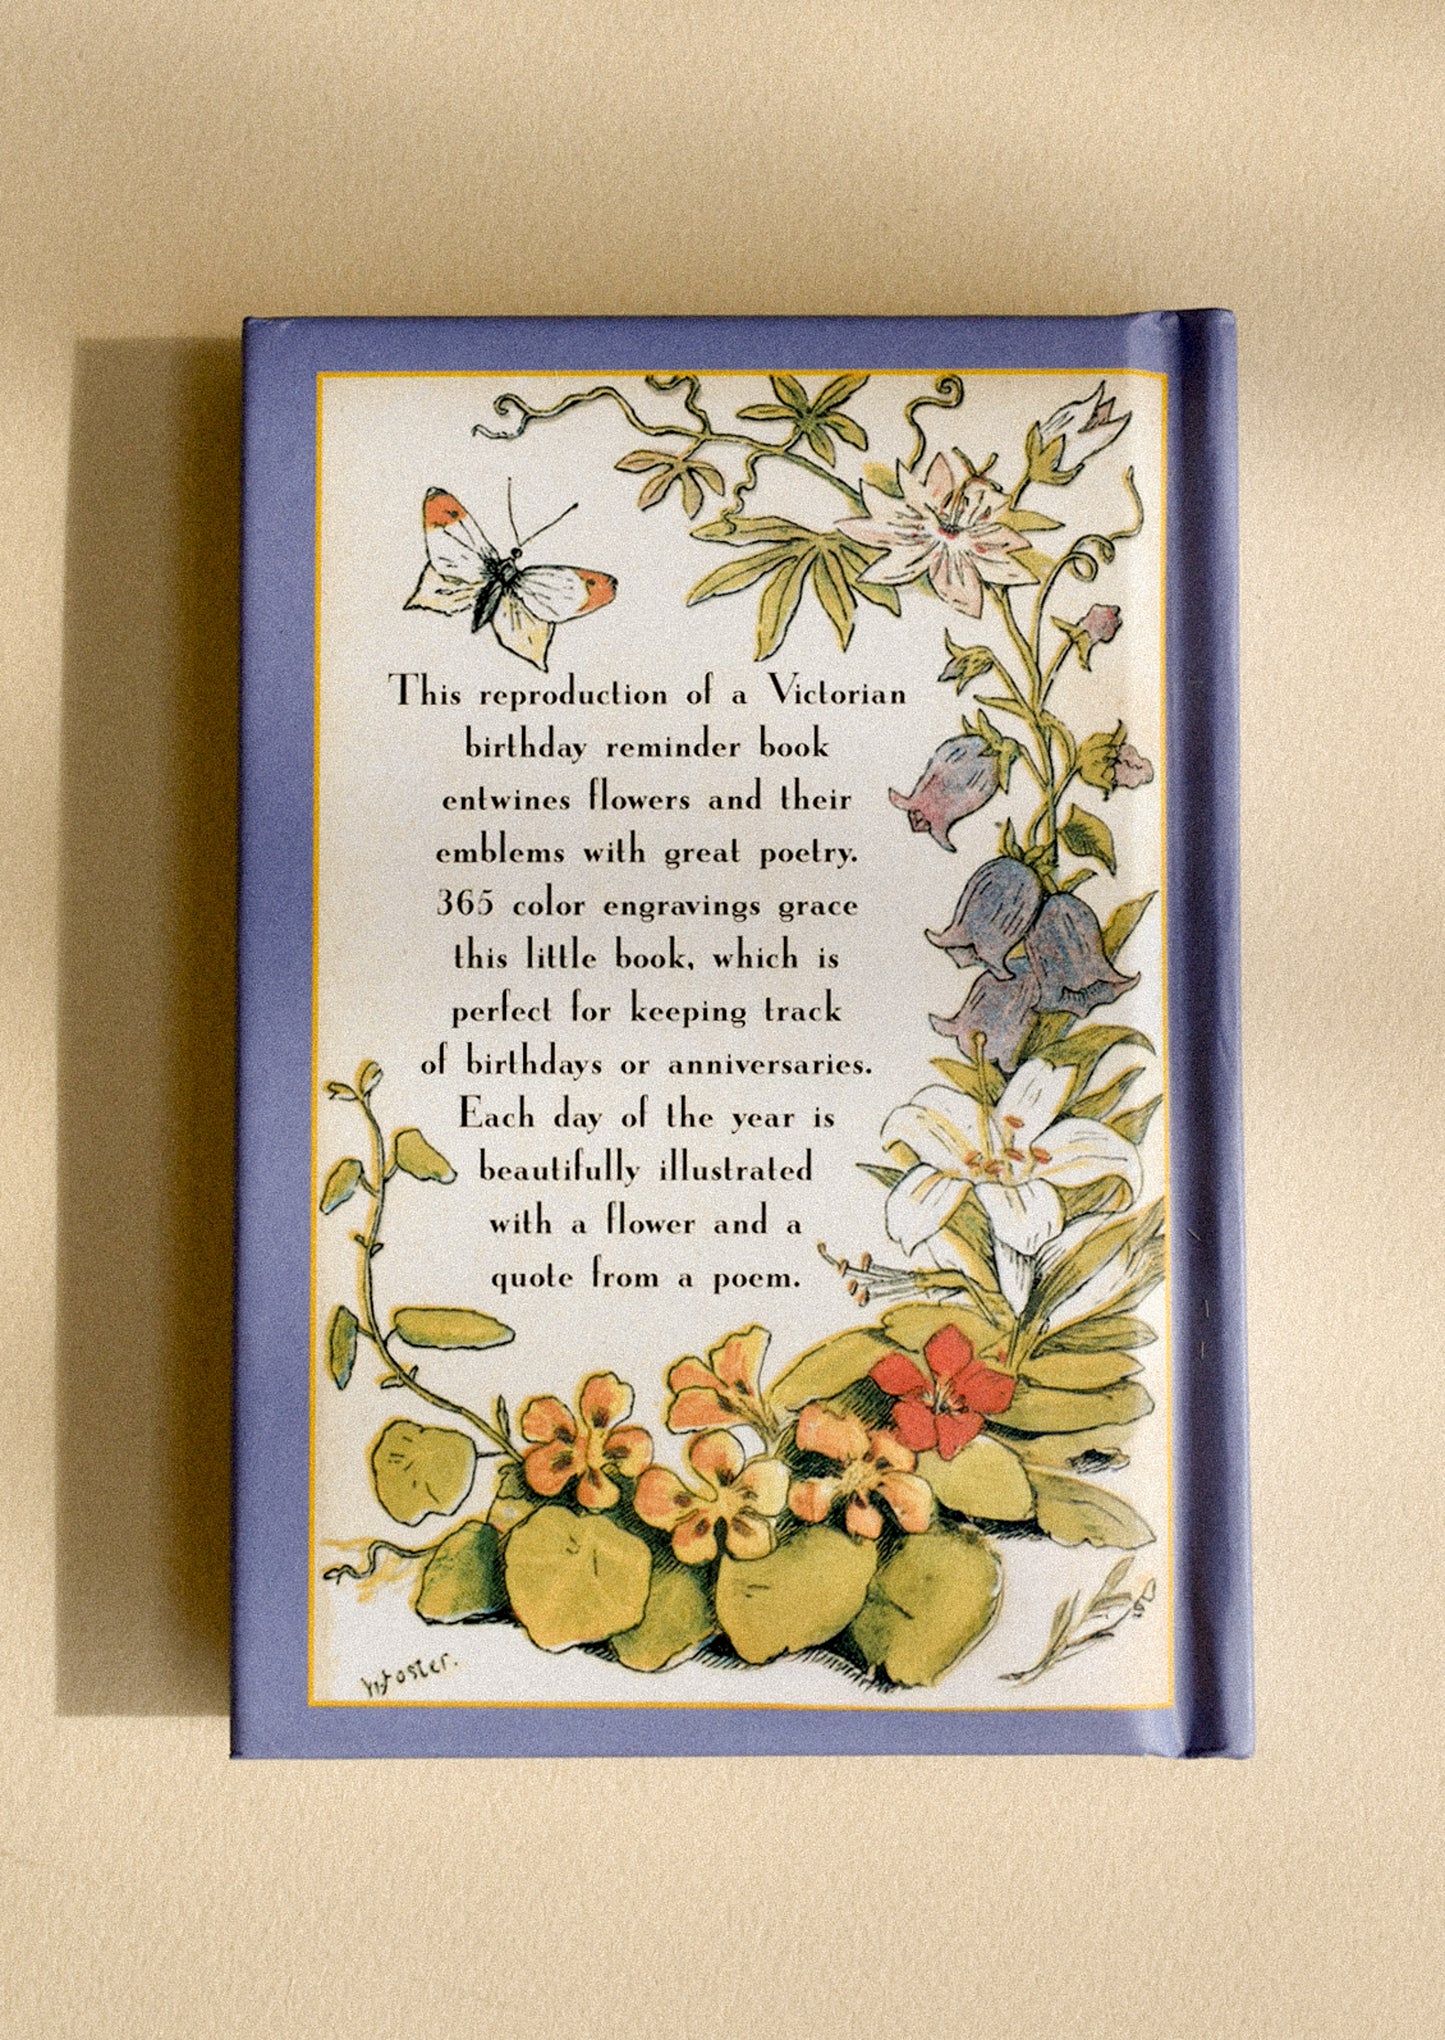 This reproduction of a Victorian
birthday reminder book
entwines flowers and their
emblems with great poetry.
365 color engravings grace
this little book, which is
perfect for keeping track
of birthdays or anniversaries.
Each day of the year is
beautifully illustrated
with a flower and a
quote from a poem.